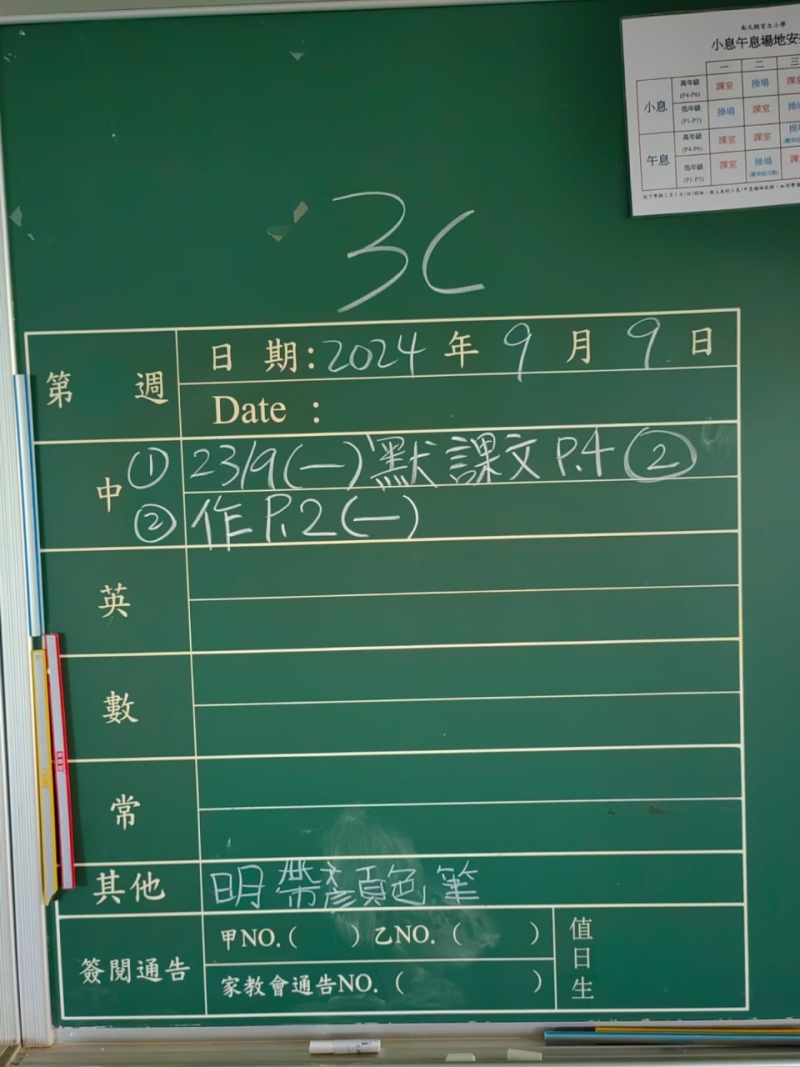 南元朗官立小學
小息午息場地安
一 二 三
小息 高年級 (P4-P6) 課室 操場 課室
低年級 (P1-P3) 操場 課室 操場
午息 高年級 (P4-P6) 課室 課室 操場
低年級 (P1-P3) 課室 操場 課
3C
第 週 日 期: 2024 年 9 月 9 日
Date :
中 ① 23/9(一)默課文 P.4 ②
② 作 P.2 (一)
英
數
常
其他 明帶顏色筆
簽閱通告 甲NO.( ) 乙NO. ( ) 值日生
家教會通告NO. ( )